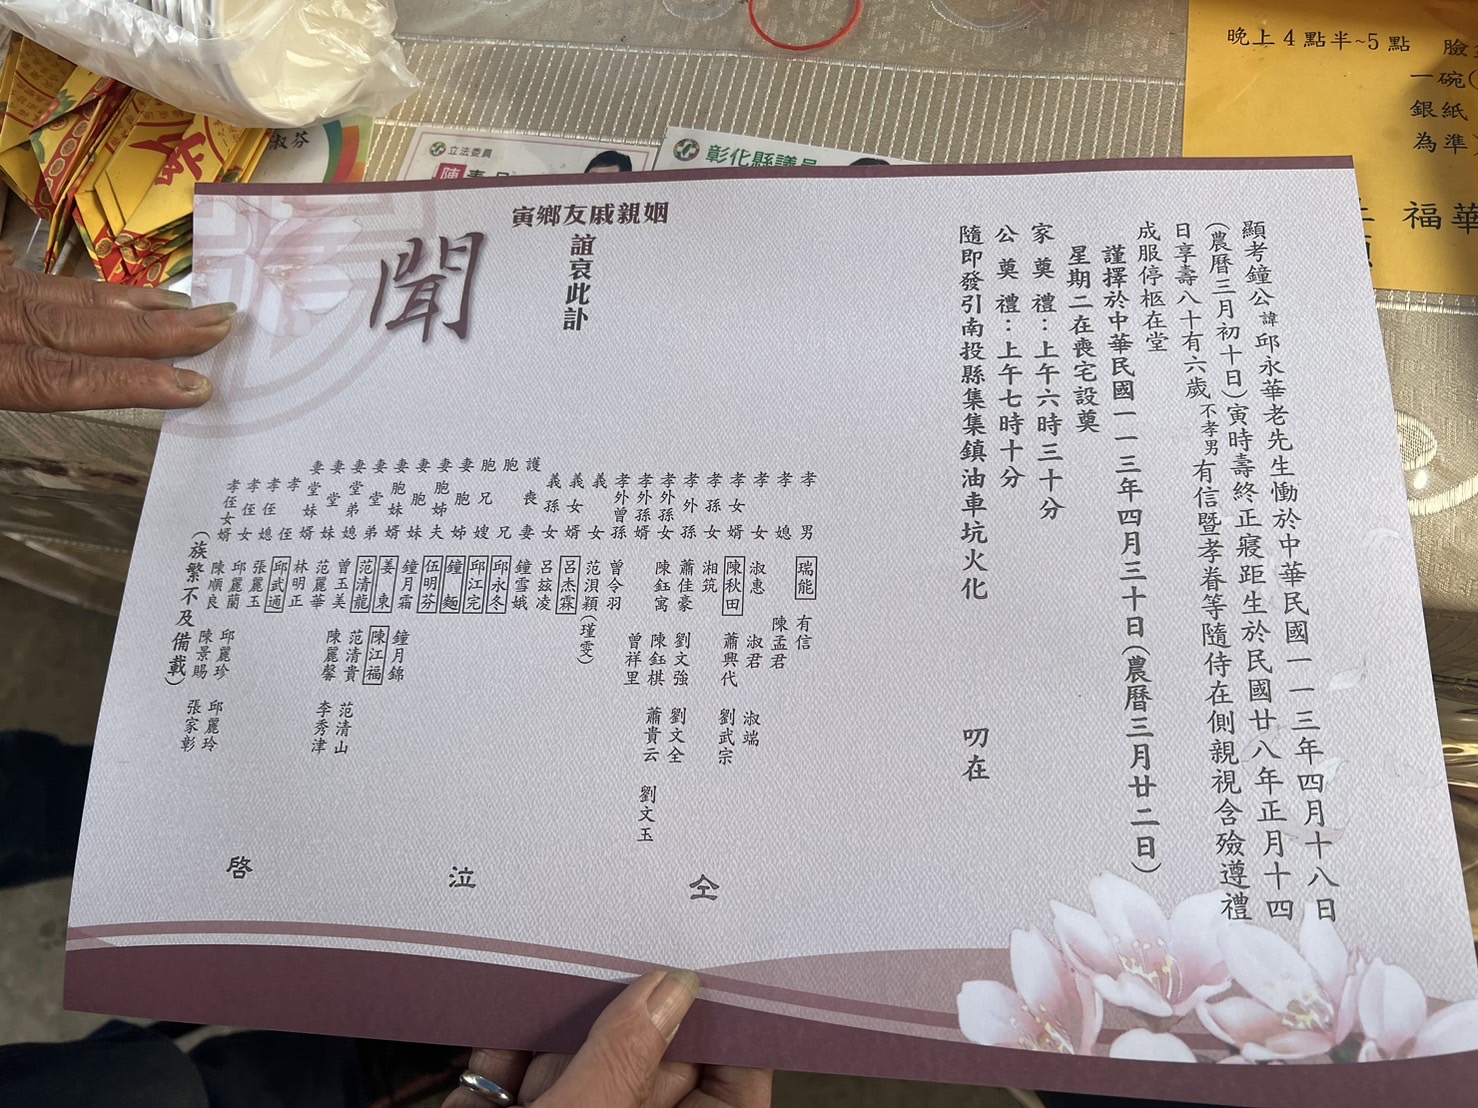 顯考鐘公諱邱永華老先生慟於中華民國一一三年四月十八日
(農曆三月初十日)寅時壽終正寢距生於民國廿八年正月十四
日享壽八十有六歲不孝男有信暨孝眷等隨侍在側親視含殮遵禮
成服停柩在堂
謹擇於中華民國一一三年四月三十日(農曆三月廿二日)
星期二在喪宅設奠
家奠禮:上午六時三十分
公奠禮:上午七時十分
隨即發引南投縣集集鎮油車坑火化
叨在
寅鄉友戚親姻
誼哀此訃
聞
孝男 瑞能 有信
孝媳 陳孟君
孝女 淑惠 淑君 淑端
孝女婿 陳秋田 蕭興代 劉武宗
孝孫女 湘筑
孝外孫 蕭佳豪 劉文強 劉文全
孝外孫女 陳鈺寓 陳鈺棋 蕭貴云 劉文玉
孝外孫婿 曾祥里
孝外曾孫 曾令羽
義女 范湨穎(瑾雯)
義女婿 呂杰霖
義孫女 呂茲凌
護喪妻 鐘雪娥
胞兄 邱永冬
胞兄嫂 邱江完
妻胞姊 鐘麵
妻胞姊夫 伍明芬
妻胞妹 鐘月霜 鐘月錦
妻胞妹婿 姜東 陳江福
妻堂弟 范清龍 范清貴 范清山
妻堂弟媳 曾玉美 陳麗馨 李秀津
妻堂妹 范麗華
妻堂妹婿 林明正
孝侄 邱武通
孝侄媳 張麗玉
孝侄女 邱麗蘭 邱麗珍 邱麗玲
孝侄女婿 陳順良 陳景賜 張家彰
(族繁不及備載)
仝
泣
啓
淑芬
立法委員
陳
彰化縣議員
晚上4點半~5點
一碗
銀紙
為準
福華